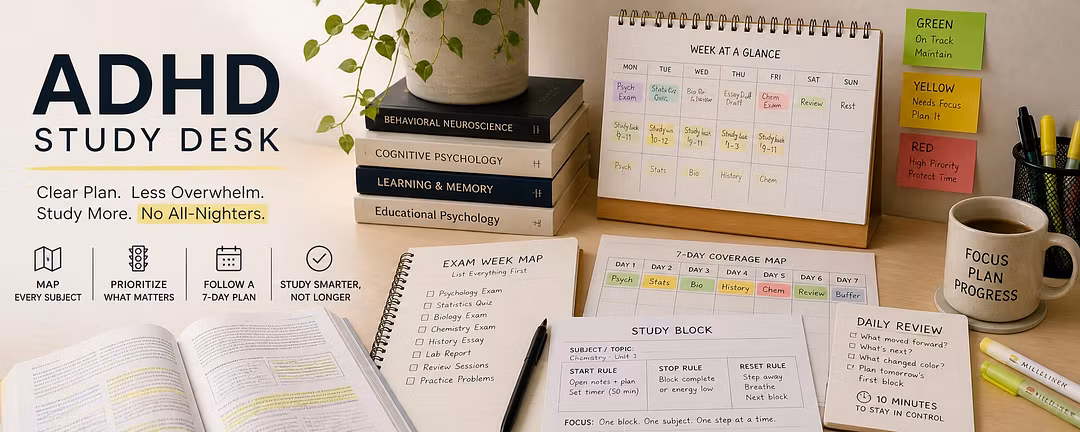 ADHD
STUDY DESK
Clear Plan. Less Overwhelm.
Study More. No All-Nighters.
MAP
EVERY SUBJECT
PRIORITIZE
WHAT MATTERS
FOLLOW A
7-DAY PLAN
STUDY SMARTER,
NOT LONGER
BEHAVIORAL NEUROSCIENCE
COGNITIVE PSYCHOLOGY
LEARNING & MEMORY
Educational Psychology
WEEK AT A GLANCE
MON TUE WED THU FRI SAT SUN
Psych Stats Bio Essay Chem Review Rest
Exam Draft Exam
Study Study Study Study Study
9-11 10-12 9-11 1-3 9-11
Psych Stats Bio History Chem
GREEN
On Track
Maintain
YELLOW
Needs Focus
Plan It
RED
High Priority
Protect Time
FOCUS
PLAN
PROGRESS
EXAM WEEK MAP
List Everything First
Psychology Exam
Statistics Quiz
Biology Exam
Chemistry Exam
History Essay
Lab Report
Review Sessions
Practice Problems
7-DAY COVERAGE MAP
DAY 1 DAY 2 DAY 3 DAY 4 DAY 5 DAY 6 DAY 7
Psych Stats Bio History Chem Review Buffer
STUDY BLOCK
SUBJECT / TOPIC:
Chemistry - Unit 3
START RULE
Open notes + plan
Set timer (50 min)
STOP RULE
Block complete
or energy low
RESET RULE
Step away
Breathe
Next block
FOCUS: One block. One subject. One step at a time.
DAILY REVIEW
What moved forward?
What's next?
What changed color?
Plan tomorrow's
first block
10 MINUTES
TO STAY IN CONTROL